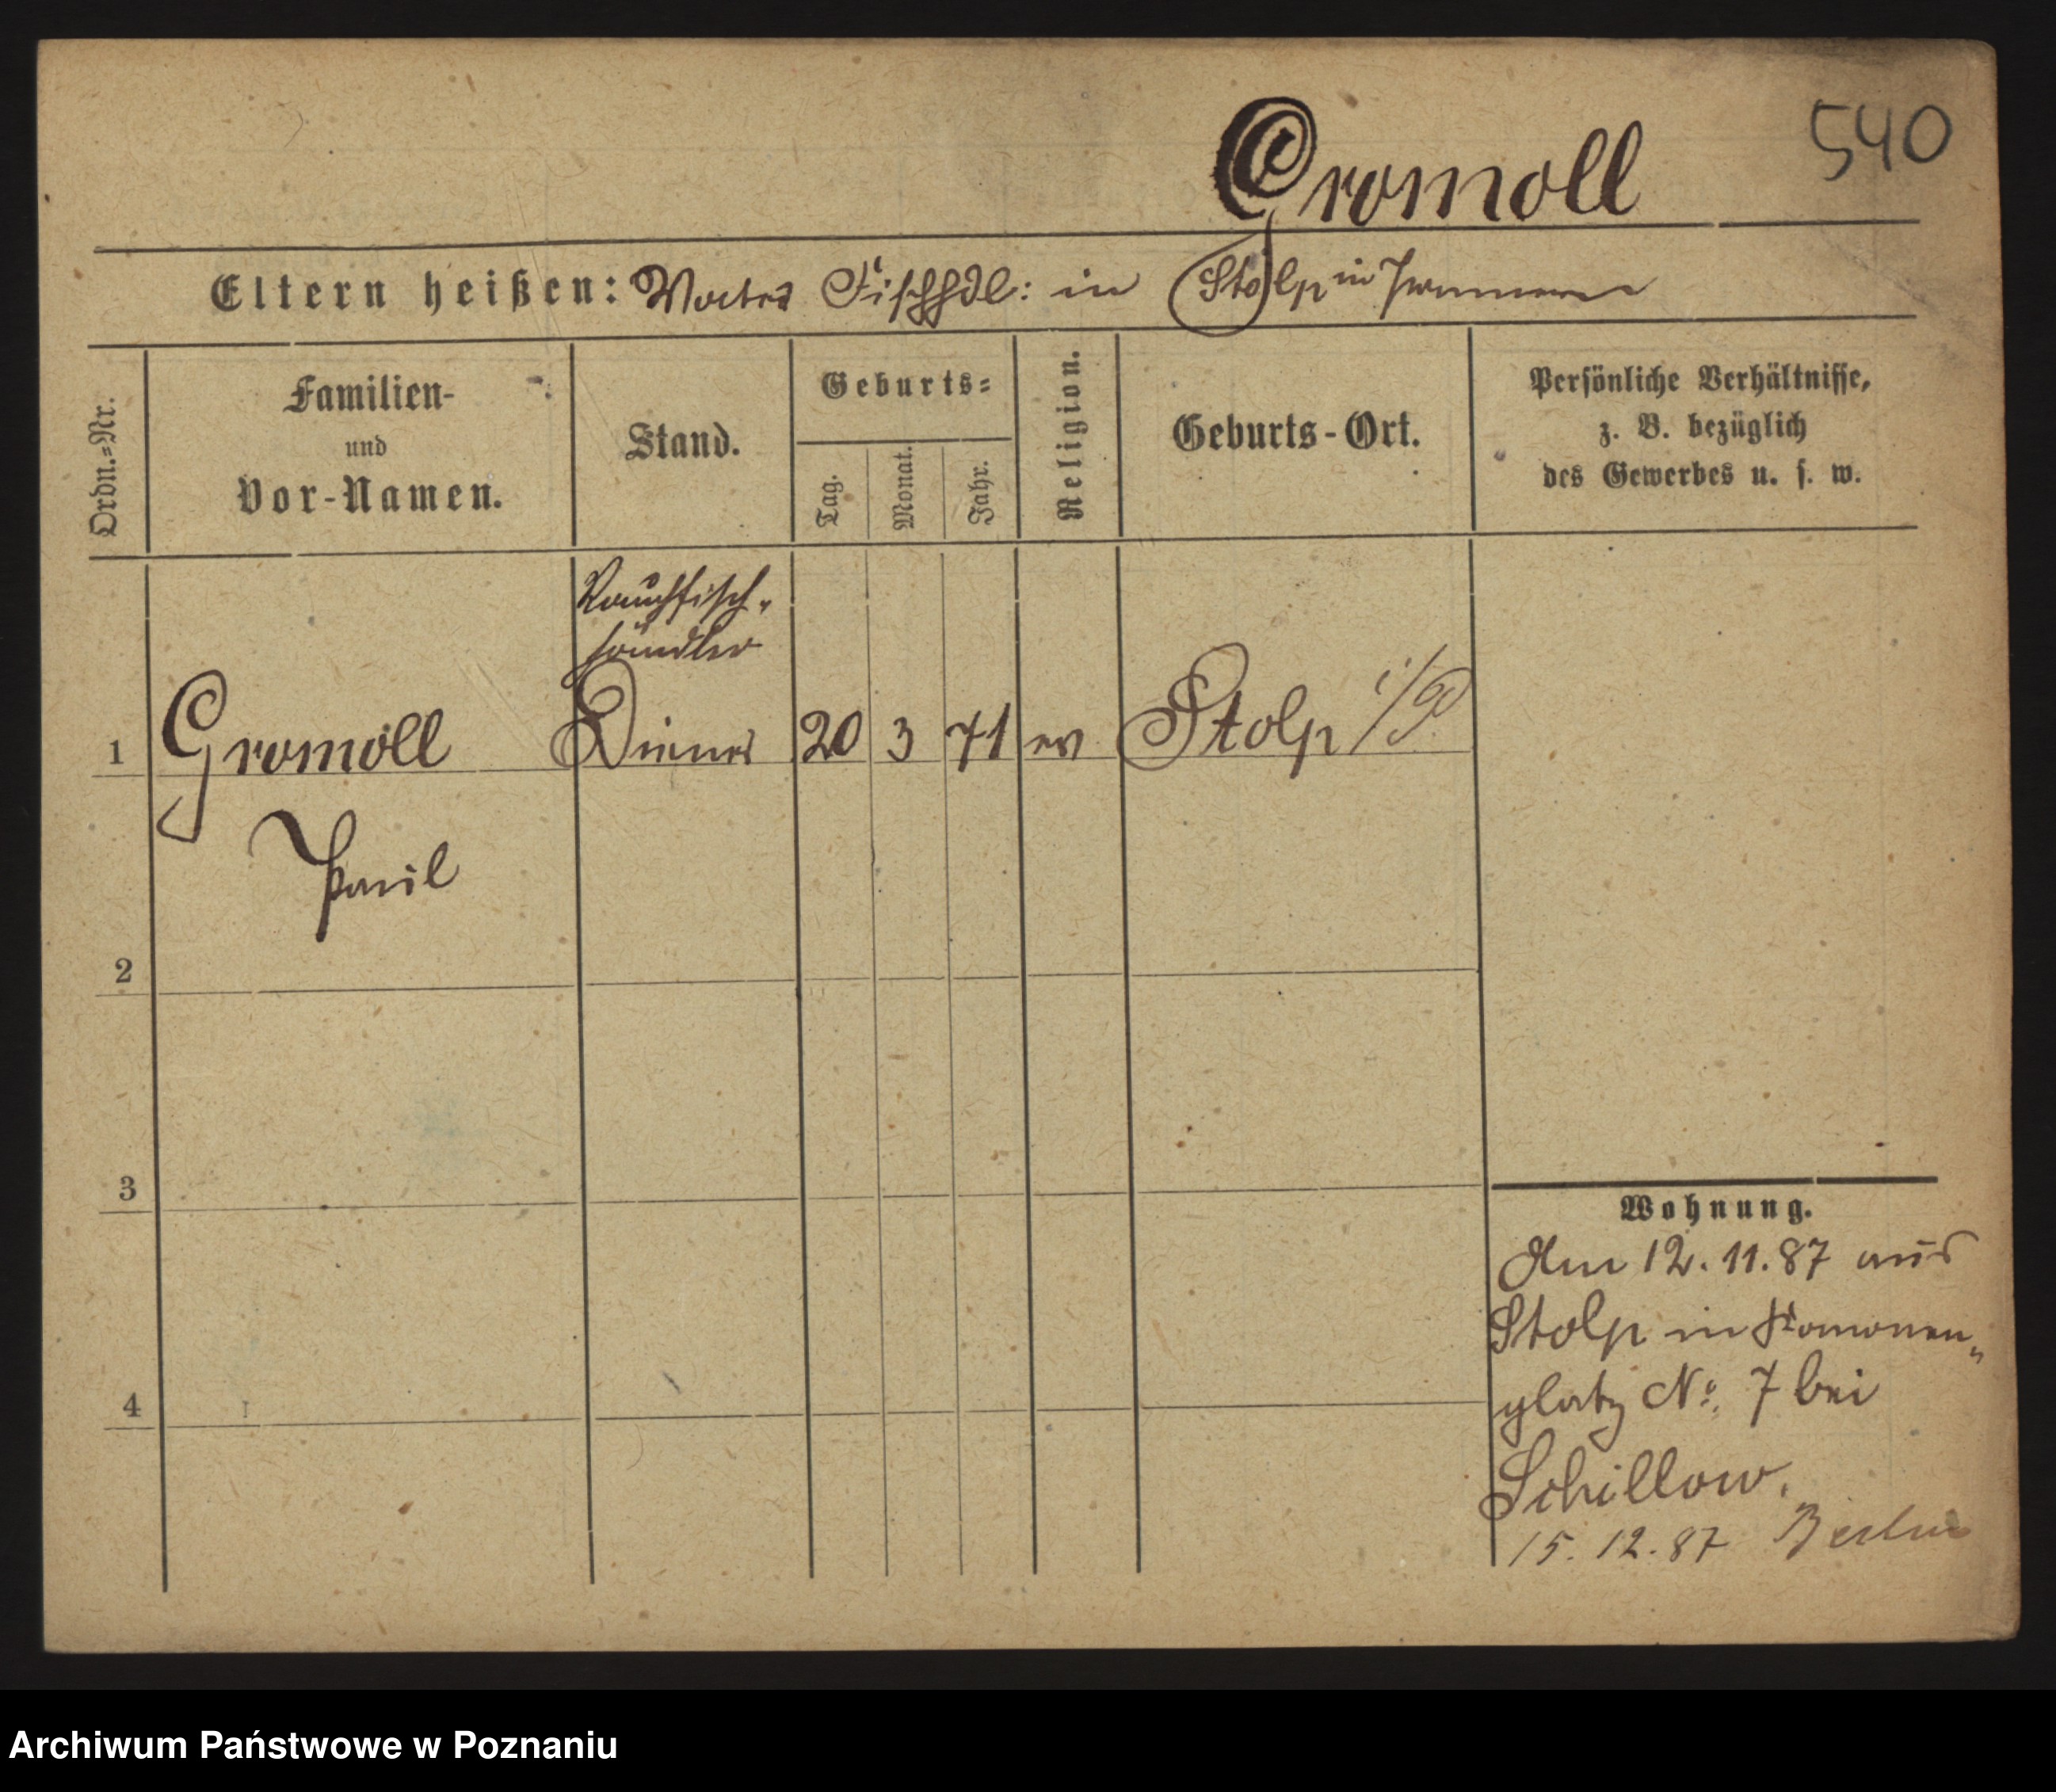 540
Gromoll
Eltern heißen: Vater Fischhdl: in Stolp in Pommern
Ordn.=Nr.
Familien-
und
Vor-Namen.
Stand.
Geburts=
Tag.
Monat.
Jahr.
Religion.
Geburts-Ort.
Persönliche Verhältnisse,
z. B. bezüglich
des Gewerbes u. s. w.
Rauchfisch-
händler
1 Gromoll Diener 20 3 71 ev Stolp i/P.
Paul
2
3
4
Wohnung.
Am 12. 11. 87 aus
Stolp in
platz No. 7 bei
Schillow.
15. 12. 87 Berlin
Archiwum Państwowe w Poznaniu